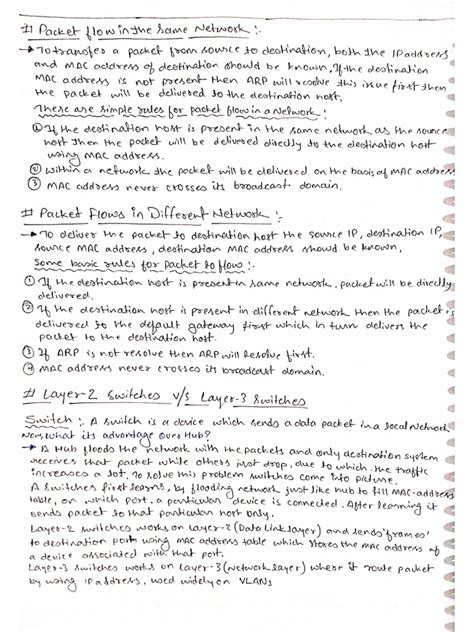 # Packet flow in the Same Network :-
→ To transfer a packet from source to destination, both the IP address
and MAC address of destination should be known, If the destination
MAC address is not present then ARP will resolve this issue first then
the packet will be delivered to the destination host.
These are simple rules for packet flow in a Network :
① If the destination host is present in the same network as the source
host then the packet will be delivered directly to the destination host
using MAC address.
② Within a network the packet will be delivered on the basis of MAC address
③ MAC address never crosses its broadcast domain.
# Packet Flows in Different Network :-
→ To deliver the packet to destination host the source IP, destination IP,
source MAC address, destination MAC address should be known,
Some basic rules for Packet to flow :-
① If the destination host is present in same network, packet will be directly
delivered.
② If the destination host is present in different network then the packet is
delivered to the default gateway first which in turn delivers the
packet to the destination host.
③ If ARP is not resolve then ARP will Resolve first.
④ MAC address never crosses its broadcast domain.
# Layer-2 Switches v/s Layer-3 Switches
Switch :- A switch is a device which sends a data packet in a local Network
Now, what its advantage over Hub?
→ A Hub floods the network with the packets and only destination system
receives that packet while others just drop, due to which the traffic
increases a lot. To solve this problem switches come into picture.
A Switches first learns, by flooding network just like hub to fill MAC-address
table, on which port a particular device is connected. After learning it
sends packet to that particular host only.
Layer-2 switches works on layer-2 (Data link layer) and sends 'frames'
to destination port using MAC address table which stores the MAC address of
a device associated with that port.
Layer-3 switches works on Layer-3 (Network layer) where it route packet
by using IP address, used widely on VLANs